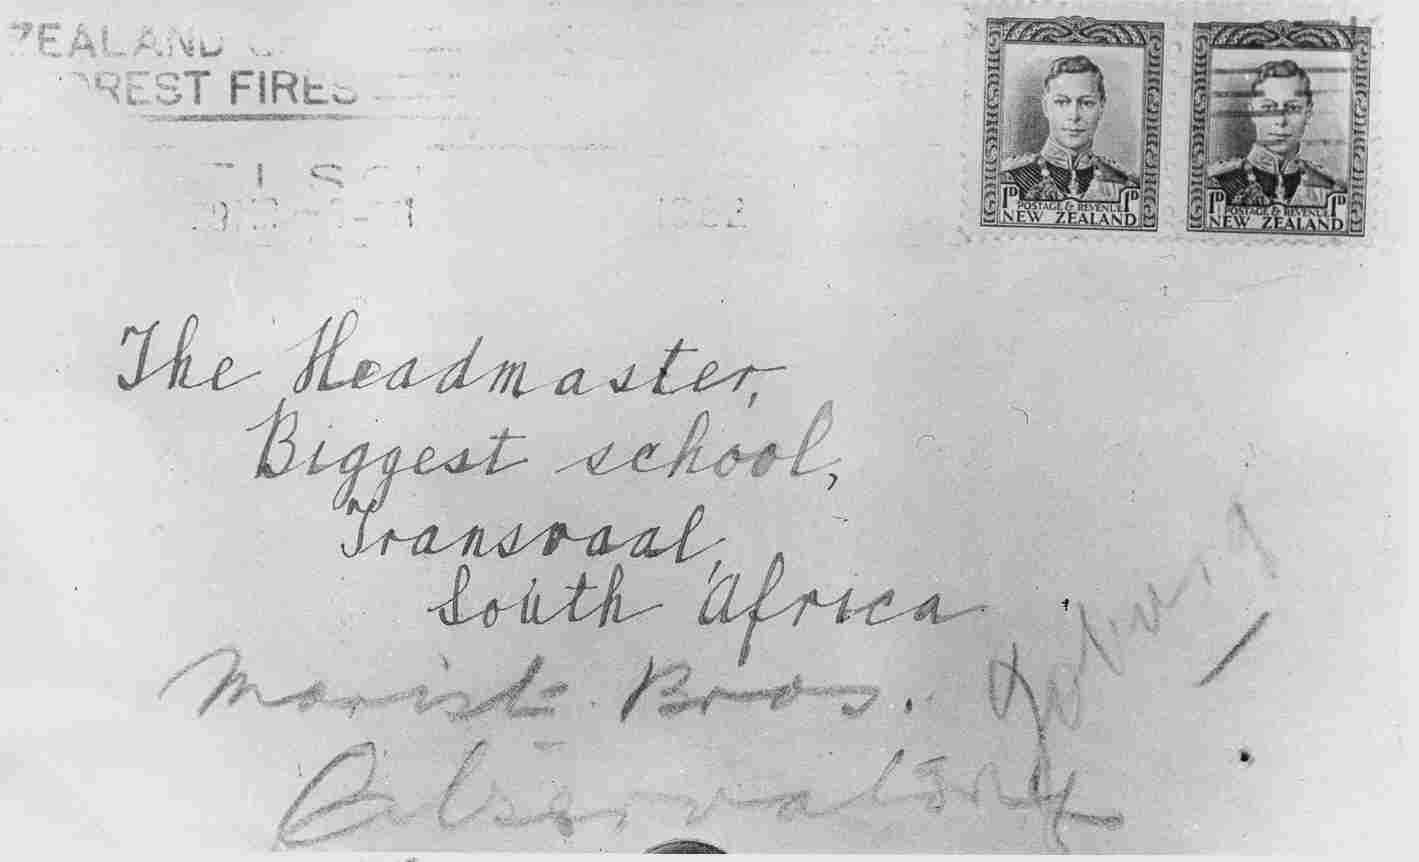 ZEALAND
FOREST FIRES
1D 1D
POSTAGE & REVENUE
NEW ZEALAND
1D 1D
POSTAGE & REVENUE
NEW ZEALAND
The Headmaster,
Biggest school,
Transvaal,
South Africa
Marist Bros.
Observatory